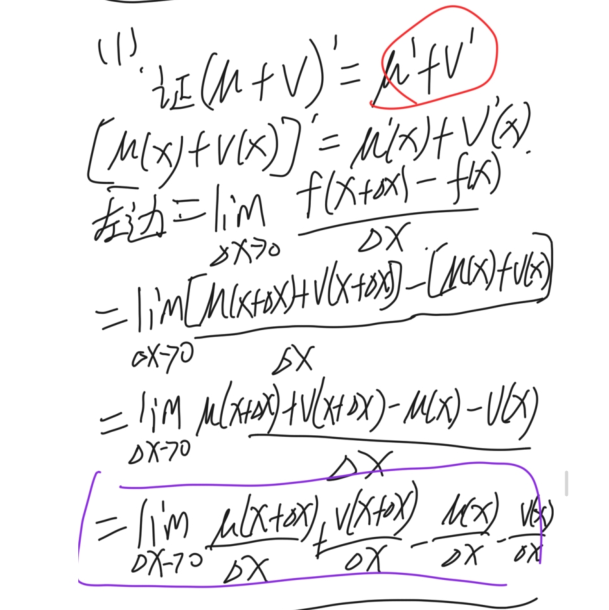 (1). 证(μ+v)'=μ'+v'
[μ(x)+v(x)]'=μ'(x)+v'(x).
左边=lim Δx→0 f(x+Δx)-f(x) / Δx
=lim Δx→0 [μ(x+Δx)+v(x+Δx)]-[μ(x)+v(x)] / Δx
=lim Δx→0 μ(x+Δx)+v(x+Δx)-μ(x)-v(x) / Δx
=lim Δx→0 μ(x+Δx)/Δx + v(x+Δx)/Δx - μ(x)/Δx - v(x)/Δx